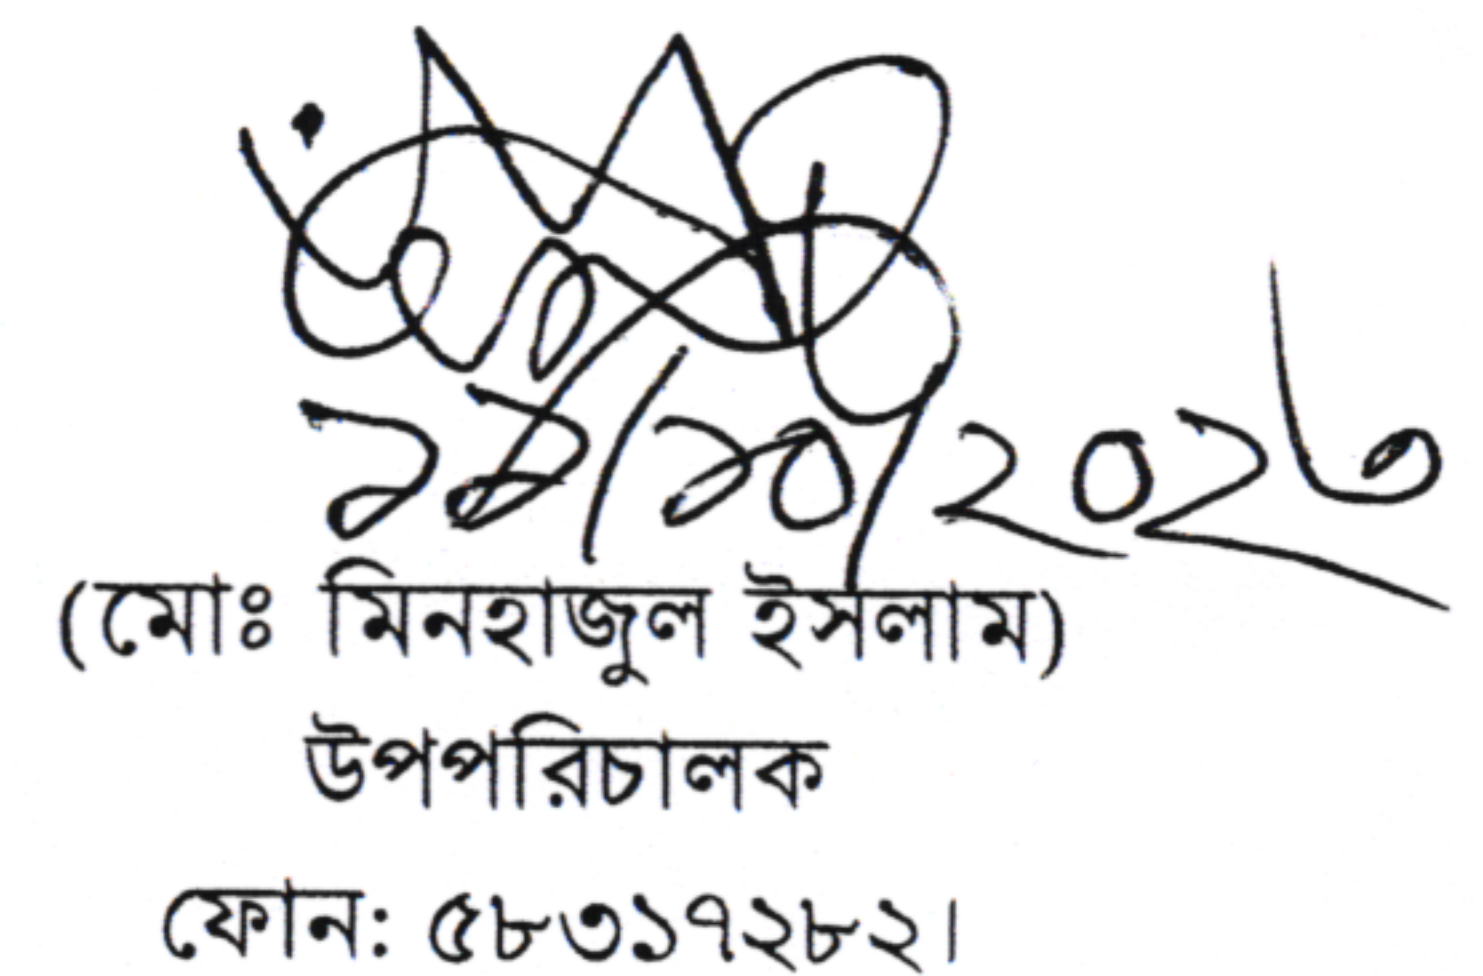 ১১/১০/২০২৩
(মোঃ মিনহাজুল ইসলাম)
উপপরিচালক
ফোন: ৫৮৩১৭২৮২।